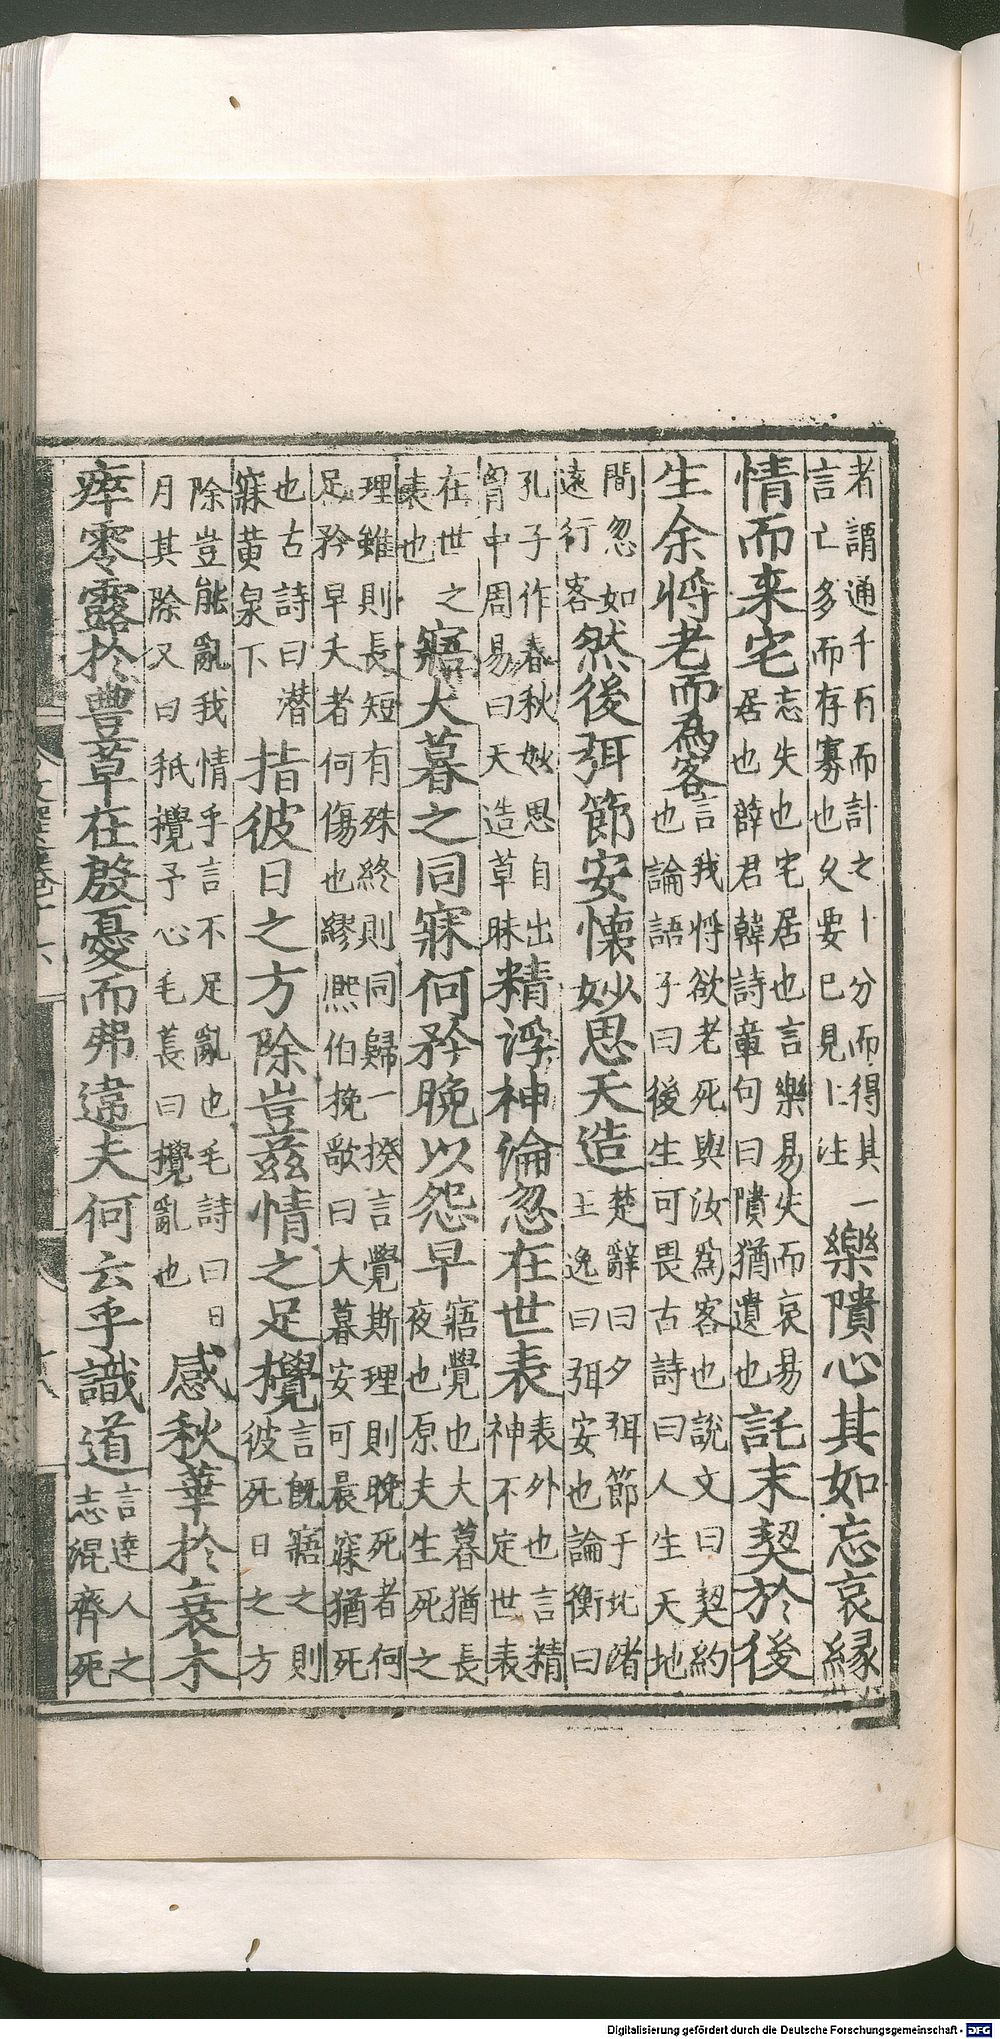 者謂通千百而計之十分而得其一言亡多而存寡也久要已見上注樂隤心其如忘哀緣
情而来宅忘失也宅居也言樂易失而哀易居也薛君韓詩章句曰隤猶遺也託末契於後
生余將老而為客言我將欲老死與汝為客也說文曰契約也論語子曰後生可畏古詩曰人生天地
間忽如遠行客然後弭節安懷妙思天造楚辭曰夕弭節于北渚王逸曰弭安也論衡曰
孔子作春秋妙思自出胷中周易曰天造草昧精浮神淪忽在世表表外也言精神不定世表
在世之表也寤大暮之同寐何矜晚以怨早寤覺也大暮猶長夜也原夫生死之
理雖則長短有殊終則同歸一揆言覺斯理則晚死者何足矜早夭者何傷也繆熙伯挽歌曰大暮安可晨寐猶死
也古詩曰潛寐黄泉下指彼日之方除豈茲情之足攪言旣寤之則彼死日之方
除豈能亂我情乎言不足亂也毛詩曰日月其除又曰秖攪予心毛萇曰攪亂也感秋華於衰木
瘁零露於豐草在殷憂而弗違夫何云乎識道言達人之志混齊死
文選卷十六
Digitalisierung gefördert durch die Deutsche Forschungsgemeinschaft - DFG